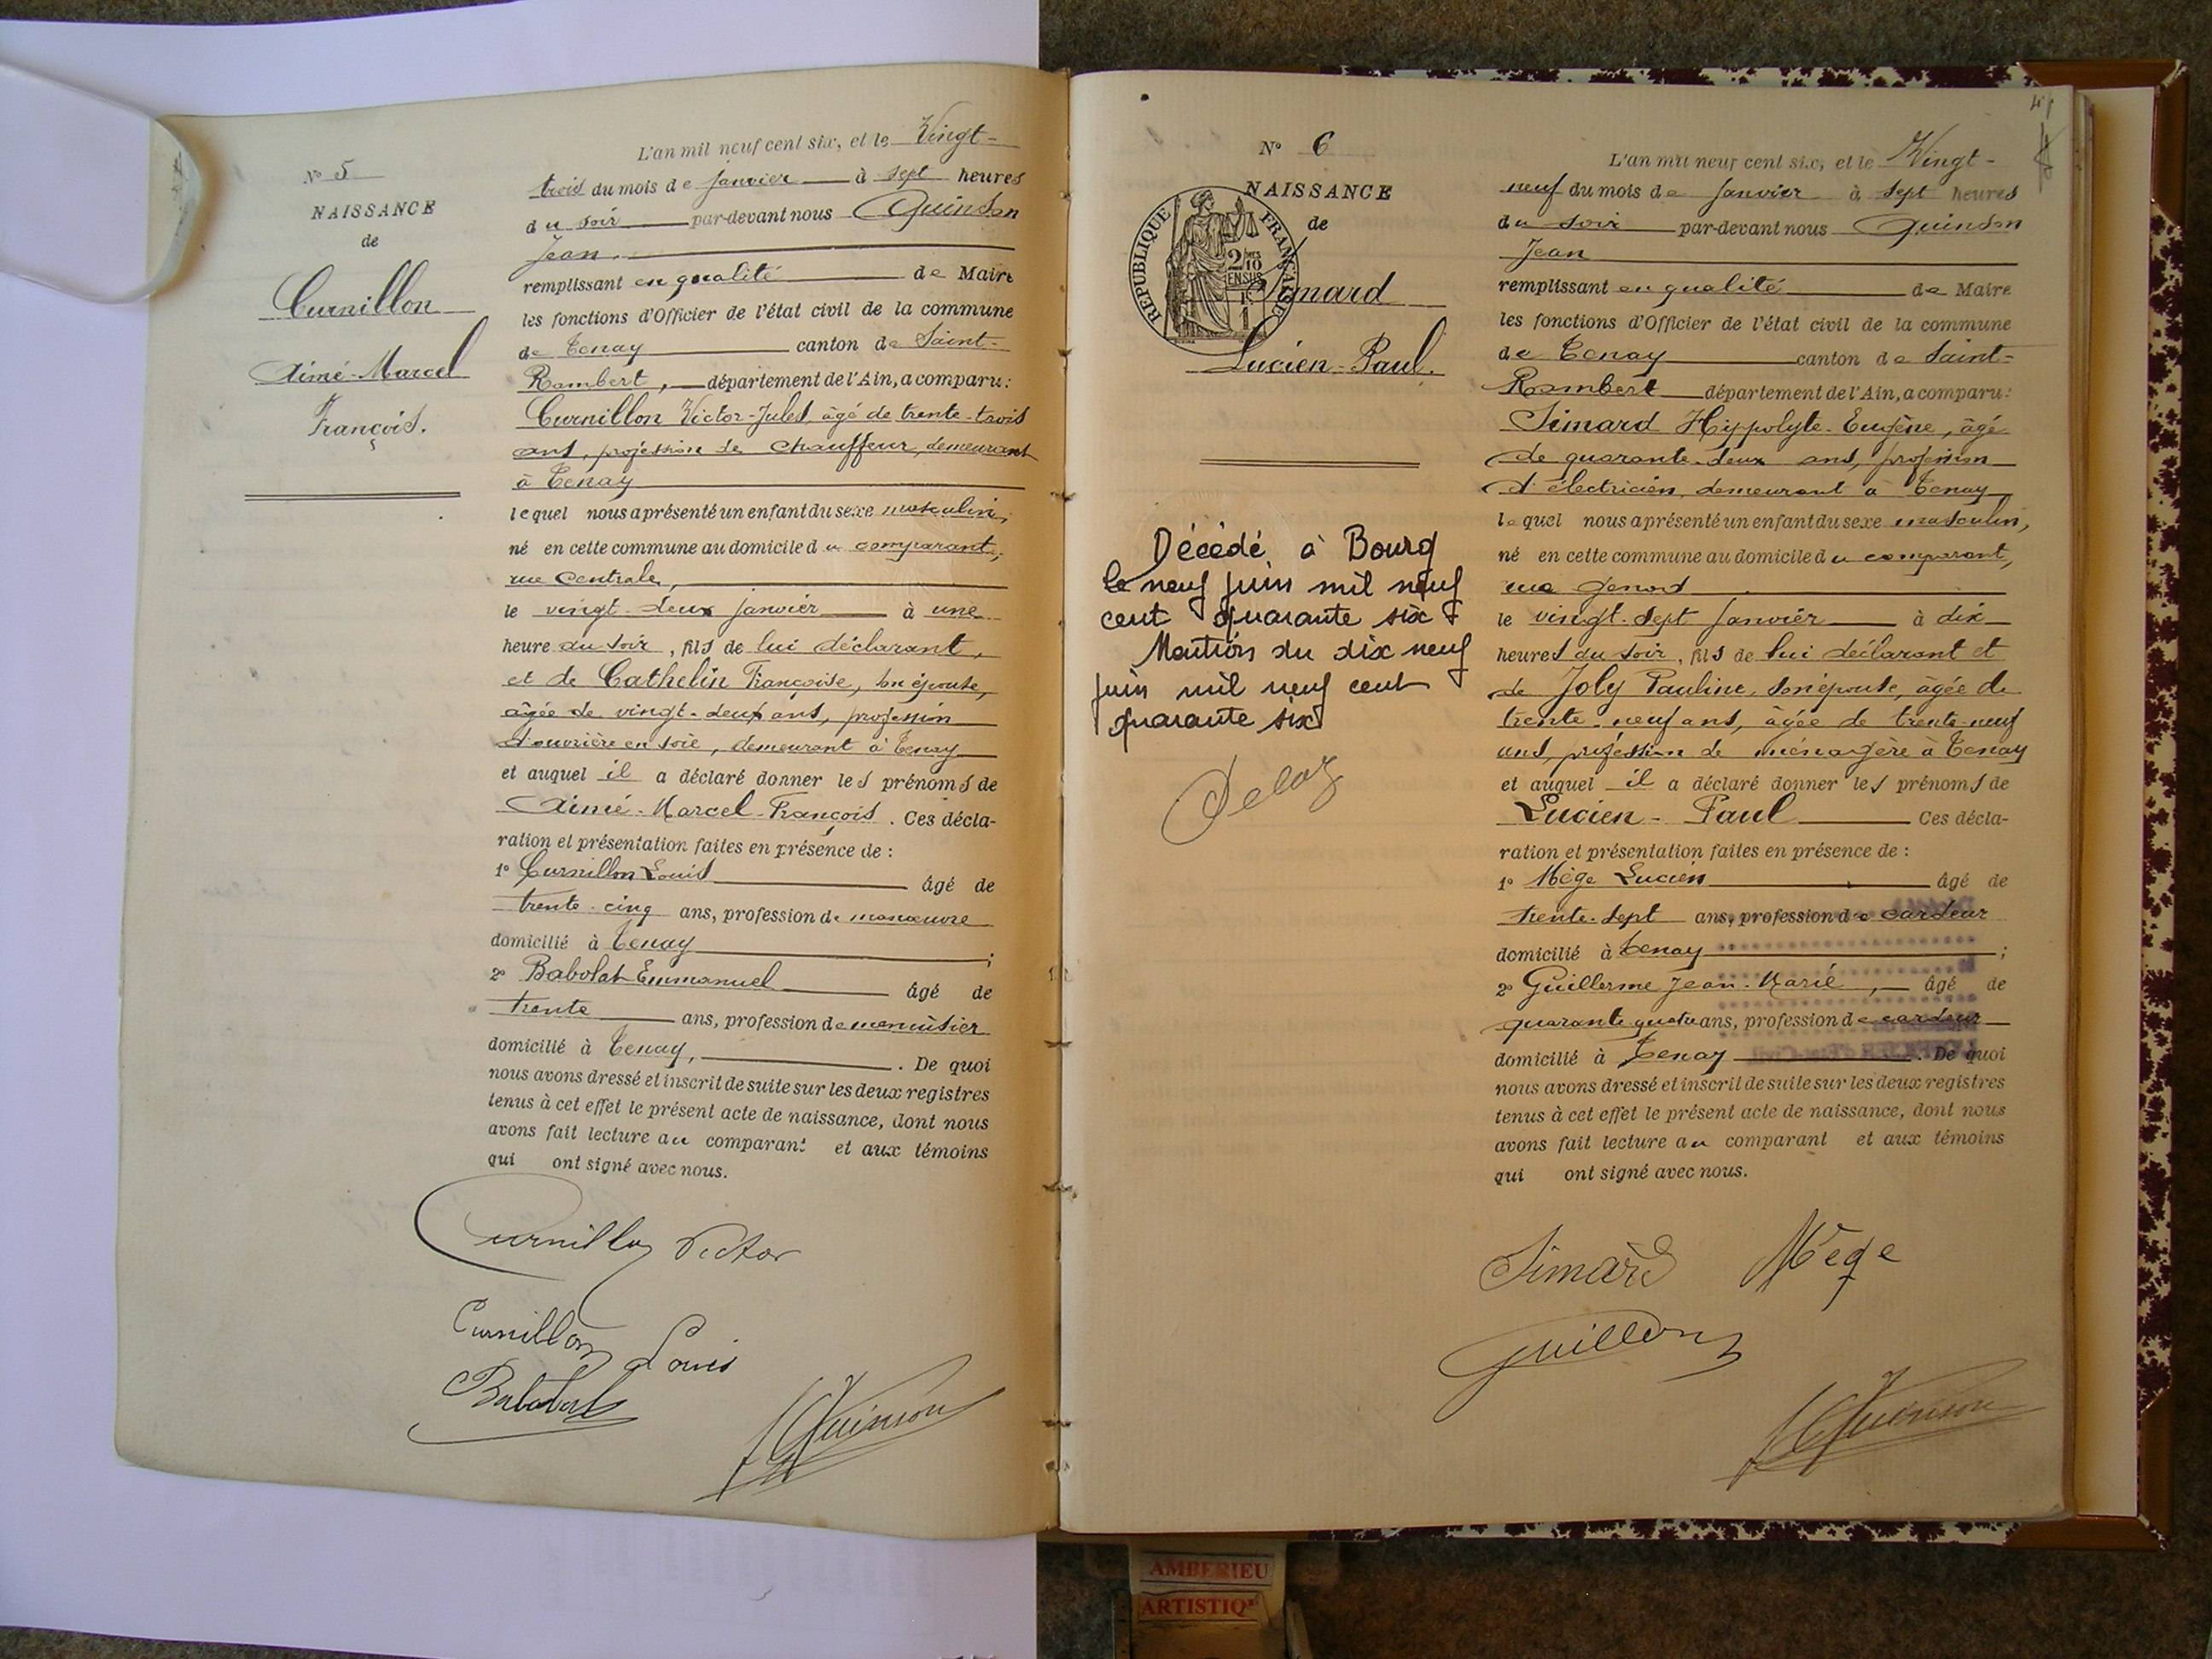 N° 5
NAISSANCE
de
Curnillon
Aimé-Marcel
François.
L'an mil neuf cent six, et le Vingt-
trois du mois de janvier à sept heures
du soir par-devant nous Quinson
Jean.
remplissant en qualité de Maire
les fonctions d'Officier de l'état civil de la commune
de Tenay canton de Saint-
Rambert, département de l'Ain, a comparu:
Curnillon Victor-Jules, âgé de trente-trois
ans, profession de chauffeur, demeurant
à Tenay
lequel nous a présenté un enfant du sexe masculin,
né en cette commune au domicile du comparant,
rue Centrale,
le vingt-deux janvier à une
heure du soir, fils de lui déclarant,
et de Cathelin Françoise, son épouse,
âgée de vingt-deux ans, profession
d'ouvrière en soie, demeurant à Tenay
et auquel il a déclaré donner les prénoms de
Aimé-Marcel-François. Ces décla-
ration et présentation faites en présence de :
1° Curnillon Louis âgé de
trente-cinq ans, profession de manœuvre
domicilié à Tenay ;
2° Babolat Emmanuel âgé de
trente ans, profession de menuisier
domicilié à Tenay, . De quoi
nous avons dressé et inscrit de suite sur les deux registres
tenus à cet effet le présent acte de naissance, dont nous
avons fait lecture au comparant et aux témoins
qui ont signé avec nous.
Curnillon Victor
Curnillon Louis
Babolat
J Quinson
N° 6
NAISSANCE
de
REPUBLIQUE FRANÇAISE
2/10
EN SUS
Simard
Lucien-Paul.
Décédé à Bourg
le neuf juin mil neuf
cent quarante six
Mention du dix neuf
juin mil neuf cent
quarante six
L'an mil neuf cent six, et le Vingt-
neuf du mois de janvier à sept heures
du soir par-devant nous Quinson
Jean
remplissant en qualité de Maire
les fonctions d'Officier de l'état civil de la commune
de Tenay canton de Saint-
Rambert département de l'Ain, a comparu:
Simard Hippolyte-Eugène, âgé
de quarante-deux ans, profession
d'électricien, demeurant à Tenay
lequel nous a présenté un enfant du sexe masculin,
né en cette commune au domicile du comparant,
rue
le vingt-sept janvier à dix
heures du soir, fils de lui déclarant et
de Joly Pauline, son épouse, âgée de
trente-neuf ans, âgée de trente-neuf
ans, profession de ménagère à Tenay
et auquel il a déclaré donner les prénoms de
Lucien-Paul Ces décla-
ration et présentation faites en présence de :
1° Mège Lucien âgé de
trente-sept ans, profession de cardeur
domicilié à Tenay ;
2° Guillerme Jean-Marie, âgé de
quarante quatre ans, profession de cardeur
domicilié à Tenay . De quoi
nous avons dressé et inscrit de suite sur les deux registres
tenus à cet effet le présent acte de naissance, dont nous
avons fait lecture au comparant et aux témoins
qui ont signé avec nous.
Simard Mège
J Quinson
AMBERIEU
ARTISTIQ